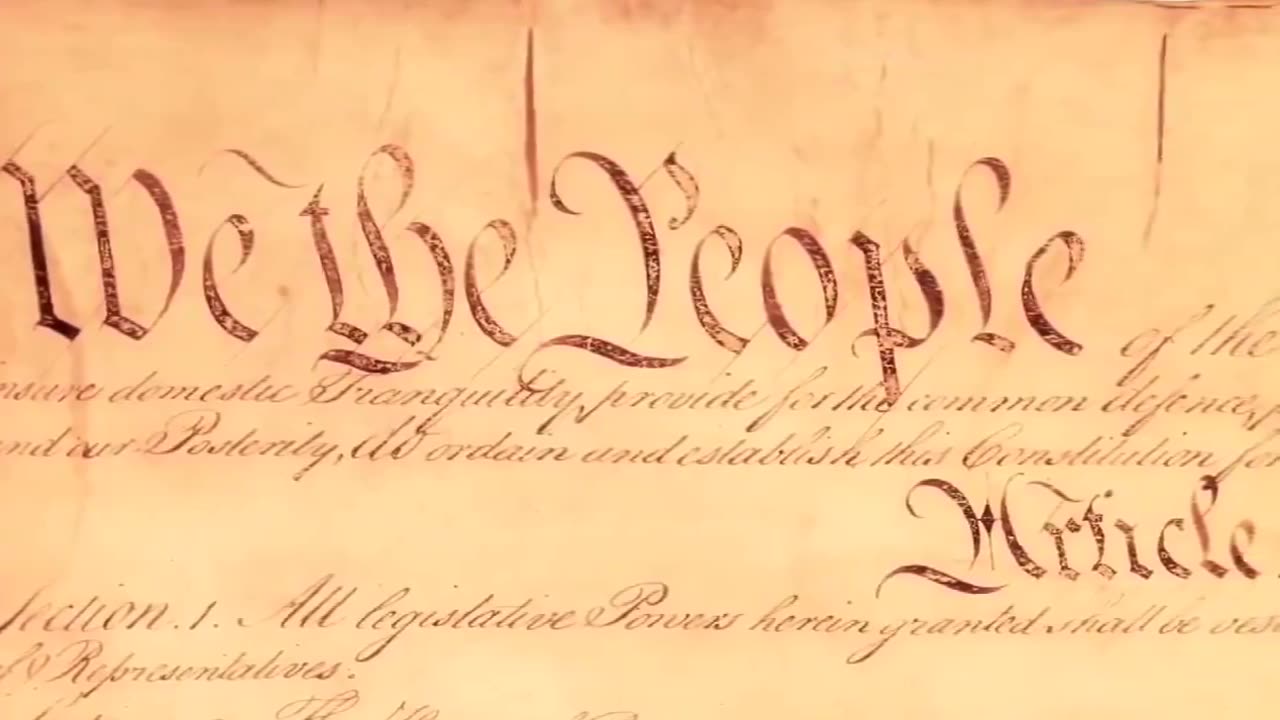 We the People of the
insure domestic Tranquility, provide for the common defence,
and our Posterity, do ordain and establish this Constitution for
Article.
Section. 1. All legislative Powers herein granted shall be vest
of Representatives.